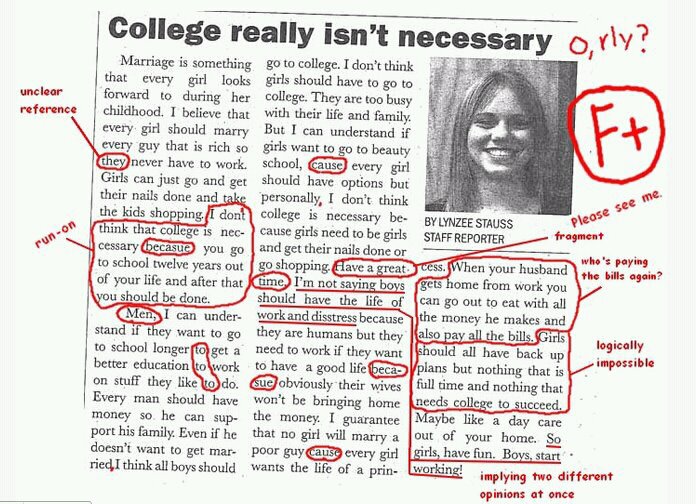 College really isn't necessary
o,rly?
Marriage is something
that every girl looks
forward to during her
childhood. I believe that
every girl should marry
every guy that is rich so
they never have to work.
Girls can just go and get
their nails done and take
the kids shopping. I don't
think that college is nec-
cessary becasue you go
to school twelve years out
of your life and after that
you should be done.
Men, I can under-
stand if they want to go
to school longer to get a
better education to work
on stuff they like to do.
Every man should have
money so he can sup-
port his family. Even if he
doesn't want to get mar-
ried, I think all boys should
go to college. I don't think
girls should have to go to
college. They are too busy
with their life and family.
But I can understand if
girls want to go to beauty
school, cause every girl
should have options but
personally, I don't think
college is necessary be-
cause girls need to be girls
and get their nails done or
go shopping. Have a great
time. I'm not saying boys
should have the life of
work and disstress because
they are humans but they
need to work if they want
to have a good life beca-
sue obviously their wives
won't be bringing home
the money. I guarantee
that no girl will marry a
poor guy cause every girl
wants the life of a prin-
BY LYNZEE STAUSS
STAFF REPORTER
cess. When your husband
gets home from work you
can go out to eat with all
the money he makes and
also pay all the bills. Girls
should all have back up
plans but nothing that is
full time and nothing that
needs college to succeed.
Maybe like a day care
out of your home. So
girls, have fun. Boys, start
working!
unclear
reference
run-on
F+
Please see me.
fragment
who's paying
the bills again?
logically
impossible
implying two different
opinions at once